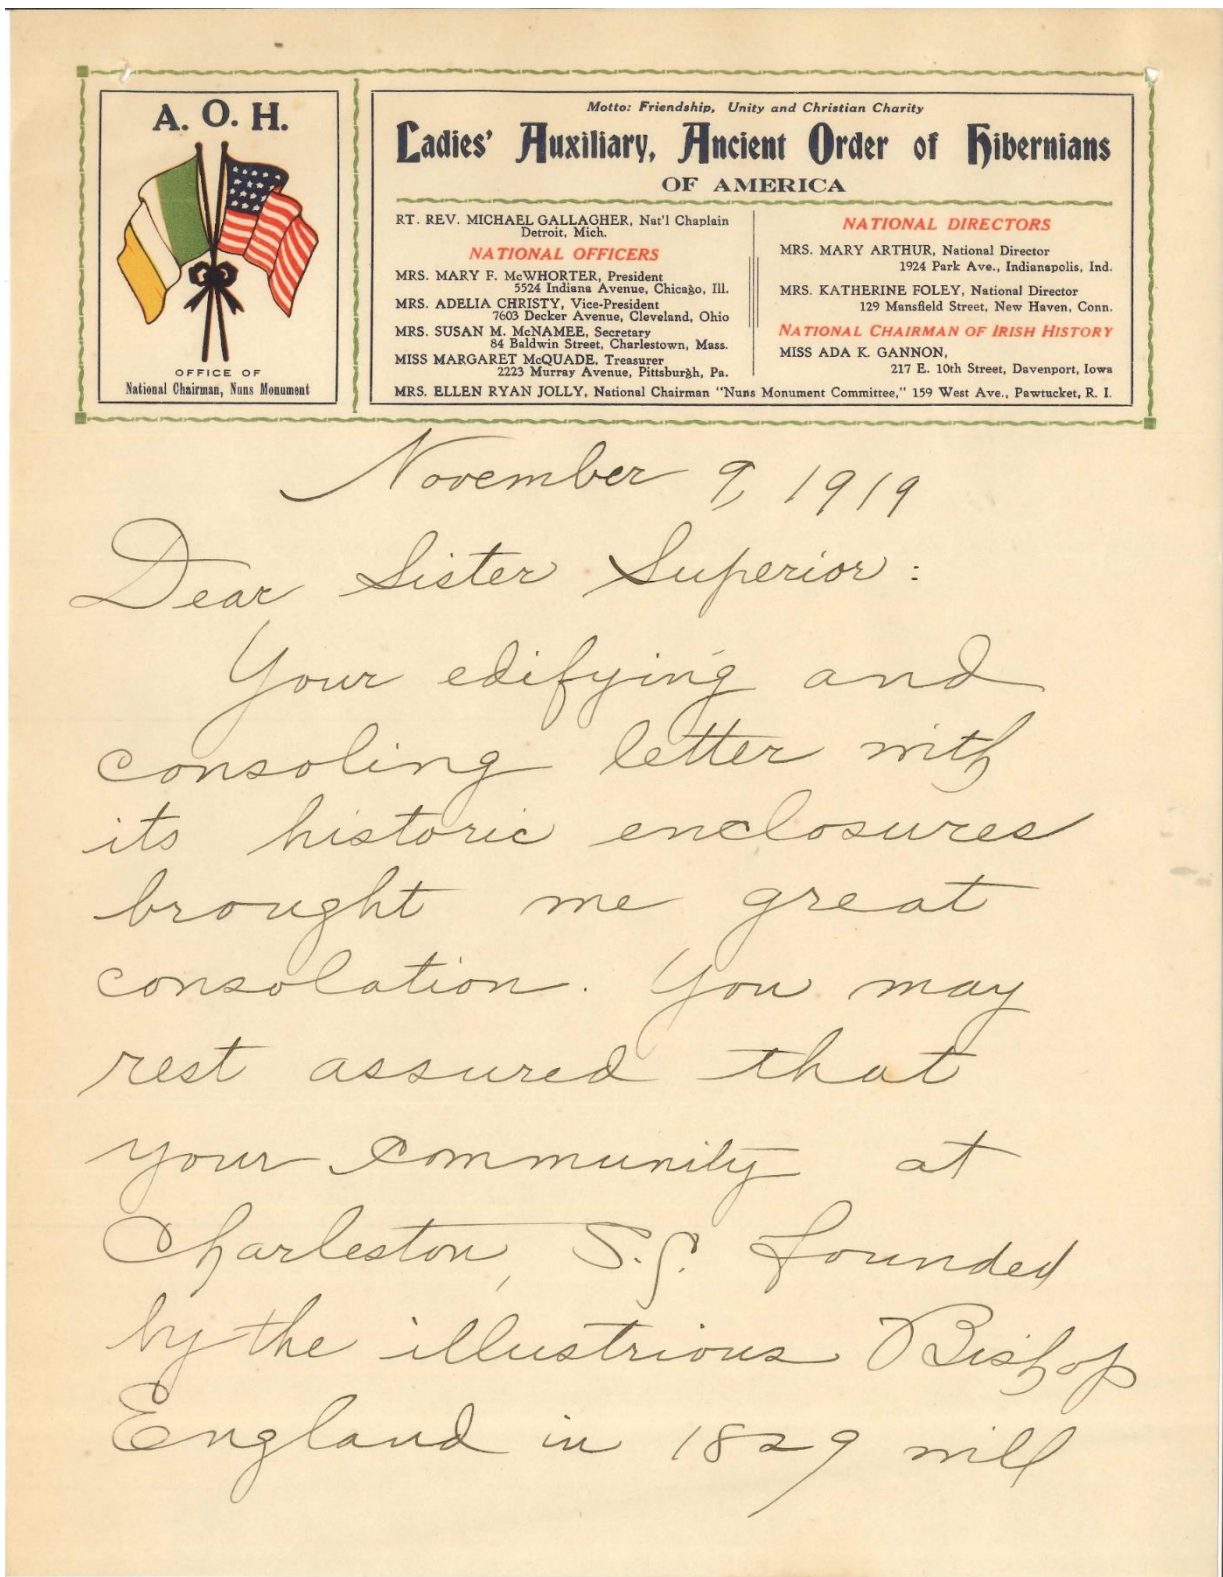 A. O. H.
OFFICE OF
National Chairman, Nuns Monument
Motto: Friendship, Unity and Christian Charity
Ladies' Auxiliary, Ancient Order of Hibernians
OF AMERICA
RT. REV. MICHAEL GALLAGHER, Nat'l Chaplain
Detroit, Mich.
NATIONAL OFFICERS
MRS. MARY F. McWHORTER, President
5524 Indiana Avenue, Chicago, Ill.
MRS. ADELIA CHRISTY, Vice-President
7603 Decker Avenue, Cleveland, Ohio
MRS. SUSAN M. McNAMEE, Secretary
84 Baldwin Street, Charlestown, Mass.
MISS MARGARET McQUADE, Treasurer
2223 Murray Avenue, Pittsburgh, Pa.
NATIONAL DIRECTORS
MRS. MARY ARTHUR, National Director
1924 Park Ave., Indianapolis, Ind.
MRS. KATHERINE FOLEY, National Director
129 Mansfield Street, New Haven, Conn.
NATIONAL CHAIRMAN OF IRISH HISTORY
MISS ADA K. GANNON,
217 E. 10th Street, Davenport, Iowa
MRS. ELLEN RYAN JOLLY, National Chairman "Nuns Monument Committee," 159 West Ave., Pawtucket, R. I.
November 9, 1919
Dear Sister Superior:
Your edifying and
consoling letter with
its historic enclosures
brought me great
consolation. You may
rest assured that
your community at
Charleston, S.C. founded
by the illustrious Bishop
England in 1829 will